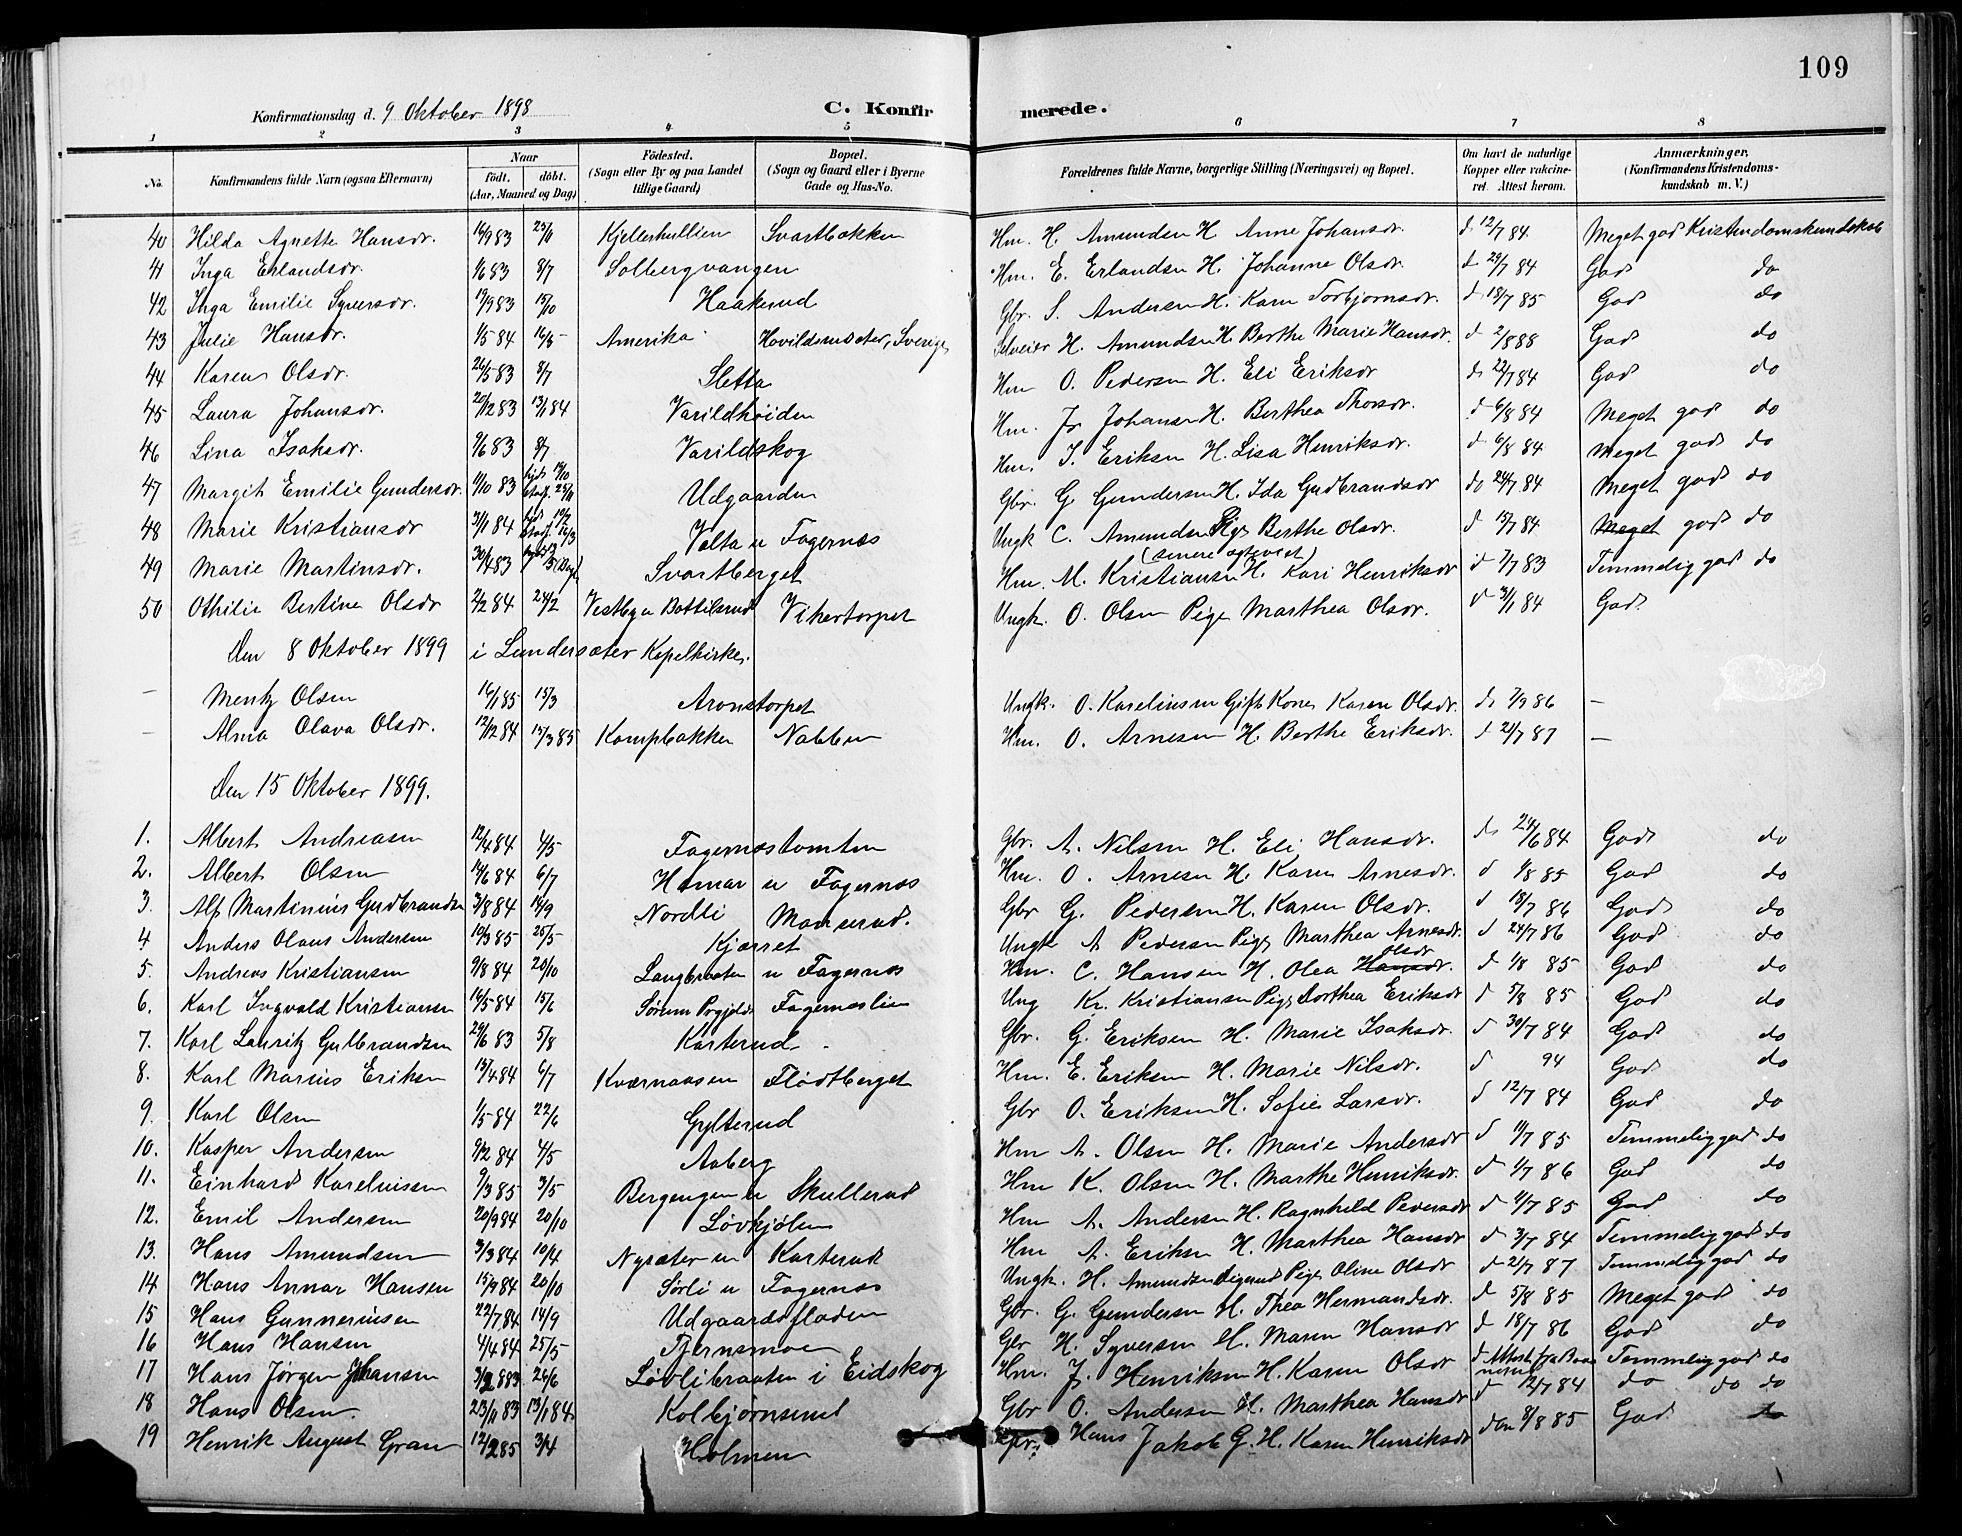 109
Konfirmationsdag d. 9 Oktober 1898 C. Konfirmerede.
1 2 3 4 5 6 7 8
No. Konfirmandens fulde Navn (ogsaa Efternavn) Naar födt. döbt. (Aar, Maaned og Dag) Födested. (Sogn eller By og paa Landet tillige Gaard) Bopæl. (Sogn og Gaard eller i Byerne Gade og Hus-No. Forældrenes fulde Navne, borgerlige Stilling (Næringsvei) og Bopæl. Om havt de naturlige Kopper eller vakcineret. Attest herom. Anmærkninger. (Konfirmandens Kristendomskundskab m. V.)
40 Hilda Agnette Hansdr. 16/9 83 25/11 Kjellerhullen Svartbakken Hm. H. Amundsen H. Anne Johansdr. d 12/7 84. Meget god Kristendomskundskab
41 Inga Erlandsdr. 1/6 83 8/7 Solbergvangen Hm. E. Erlandsen H. Johanne Olsdr. d 29/7 84 God do
42 Inga Emilie Syversdr. 19/9 83 15/10 Haakerud Gbr. S. Andersen H. Karen Torbjørnsdr. d 18/7 85 God do
43 Julie Hansdr. 1/5 84 16/5 Amerika Hovildsæter, Sverige Selveier H. Amundsen H. Berthe Marie Hansdr. d 2/8 88 God do
44 Karen Olsdr. 26/5 83 8/7 Sletta Hm O. Pedersen H. Eli Eriksdr d 22/7 84 God do
45 Laura Johansdr. 20/12 83 13/1 84 Varildhöiden Hm. Jo Johansen H. Berthea Thorsdr. d 6/8 84 Meget god do
46 Lina Isaksdr. 9/6 83 8/7 Varildskog Hm. I. Eriksen H. Lisa Henriksdr. d 6/8 84 Meget god do
47 Margit Emilie Gundersdr. 1/10 83 Udgaarden Gbr. G. Gundersen H. Ida Gudbrandsdr do 24/7 84 Meget god do
48 Marie Kristiansdr 31/1 84 Valta u Fagernæs Ungk C. Amundsen Pige Berthe Olsdr. (senere ægteviet) d 19/7 84 Meget god do
49 Marie Martinsdr. 30/4 83 Svartberget Hm. M. Kristiansen H. Kari Henriksdr d 7/7 83 Temmelig god do
50 Othilie Bertine Olsdr 2/2 84 24/2 Vestbyn Bottilsrud Vikertorpet Ungk. O. Olsen Pige Marthea Olsdr. d 31/1 84 God
Den 8 Oktober 1899 i Lundersæter Kapelkirke.
— Mentz Olsen 16/1 85 15/3 Aronstorpet Ungk. O. Kareliussen Gift Kone Karen Olsdr. d 7/9 86 —
— Alma Olava Olsdr. 12/12 84 15/3 85 Kampbakken Nabben Hm. O. Arnesen H. Berthe Eriksdr. d 21/7 87 —
Den 15 Oktober 1899.
1. Albert Andreasen 12/4 84 4/5 Fagernæstomten Gbr. A. Nilsen H. Eli Hansdr. d 24/6 84 God do
2. Albert Olsen 14/6 84 6/7 Hamar u Fagernæs Hm. O. Arnesen H. Karen Arnesdr. d 1/8 85 God do
3. Alf Martinius Gudbrandsen 3/8 84 14/9 Nordli Manerud. Gbr G. Pedersen H. Karen Olsdr. d 18/7 86 God do
4 Anders Olaus Andersen 10/3 85 25/5 Kjærret Ungk A Pedersen Pige Marthea Arnesdr. d 24/7 86 God do
5. Andreas Kristiansen 9/8 84 20/10 Langbraaten u Fagernæs Hm. C. Hansen H. Olea Hansdr. Olsdr d 1/8 85 God do
6. Karl Ingvald Kristiansen 16/5 84 15/6 Sørum Fagernæslien Ung Kr. Kristiansen Pige Dorthea Eriksdr d 5/8 85 God do
7. Karl Lauritz Gulbrandsen 29/6 83 5/8 Karterud Gbr. G. Eriksen H. Marie Isaksdr. d 30/7 84 God do
8. Karl Marius Eriksen 13/4 84 6/7 Kværnaasen Flödtberget Hm. E. Eriksen H. Marie Nilsdr. d 94 God do
9. Karl Olsen 1/5 84 22/6 Gylterud Gbr O. Eriksen H. Sofie Larsdr. d 12/7 84 God do
10. Kasper Andersen 9/2 84 4/5 Aaberg Hm A. Olsen H. Marie Andersdr d 11/7 85 Temmelig god do
11. Einhard Kareliussen 9/3 85 3/5 Bergengen u Skullerud Hm K. Olsen H. Marthe Henriksdr. d 1/7 86 God do
12. Emil Andersen 20/9 84 20/10 Løvhjølen Hm A. Andersen H. Ragnhild Pedersdr d 4/7 85 God do
13. Hans Amundsen 3/3 84 10/4 Nysæter u Karterud Hm A. Eriksen H. Marthea Hansdr d 3/7 84 Temmelig god do
14 Hans Annar Hansen 15/9 84 20/10 Sörli u Fagernæs Ungk. H. Amundsen Pige Oline Olsdr d 21/7 87 Temmelig god do
15 Hans Gunneriusen 22/7 84 14/9 Udgaardsfladen Gbr. G. Gundersen H. Thea Hermandsdr. d 5/8 85 Meget god do
16 Hans Hansen 4/4 84 25/5 Tjernsmoen Gbr H. Syversen H. Maren Hansdr d 18/7 86 God do
17 Hans Jørgen Johansen 3/2 83 26/6 Løvlibraaten i Eidskog Hm. J. Henriksen H. Karen Olsdr d Attest fra Temmelig god do
18 Hans Olsen. 23/11 83 13/1 84 Kolbjørnsrud Gbr O. Andersen H. Marthea Hansdr d 12/7 84 do do do
19 Henrik August Gran 12/2 85 3/4 Holmen Gbr. Hans Jakob G. H. Karen Henriksdr den 8/8 85 God do